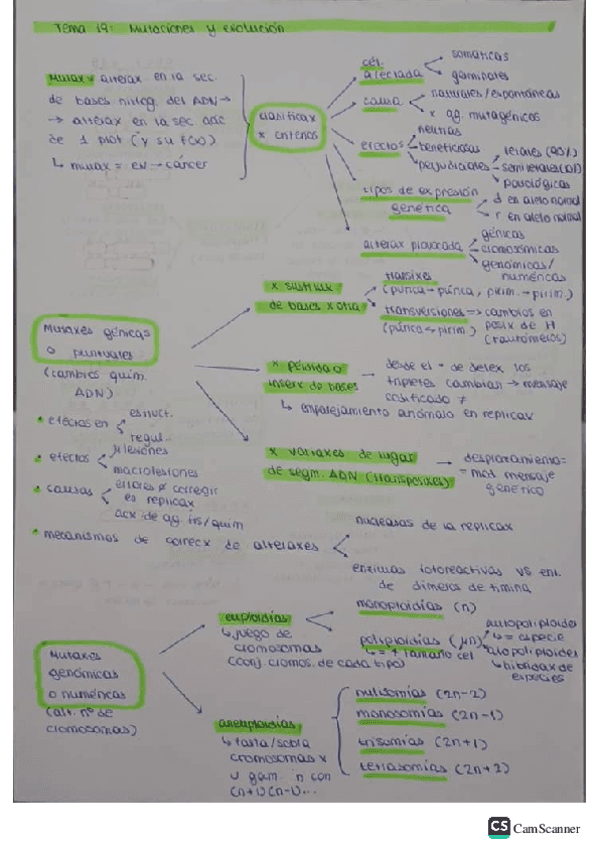 Tema 19: Mutaciones y evolución
Mutax → alterax en la sec.
de bases nitrog. del ADN →
→ alterax en la sec aac
de 1 prot (y su fx)
↳ mutax = ev → cáncer
clasificax
x criterios
cél.
afectada
somáticas
germinales
causa
naturales/espontáneas
x ag. mutagénicos
efectos
neutras
beneficiosas
perjudiciales
letales (90%)
semiletales
patológicas
tipos de expresión
genética
d en alelo normal
r en alelo normal
alterax provocada
génicas
cromosómicas
genómicas/
numéricas
Mutaxes génicas
o puntuales
(cambios quím.
ADN)
x sustitux
de bases x otra
transixes
(púrica → púrica, pirim. → pirim.)
transversiones => cambios en
(púrica ↔ pirim.) posix de H
(tautómeros)
x pérdida o
inserx de bases
desde el * de delex los
tripletes cambian → mensaje
codificado ≠
↳ emparejamiento anómalo en replicax
x variaxes de lugar
de segm. ADN (transposixes)
desplazamiento =
= mod mensaje
genético
* efectos en
estruct.
regul.
* efectos
lesiones
macrolesiones
* causas
errores ∅ corregir
es replicax
acx de ag. fís/quím
* mecanismos de correcx de alteraxes
nucleasas de la replicax
enzimas fotoreactivas VS enl.
de dímeros de timina
Mutaxes
genómicas
o numéricas
(alt. nº de
cromosomas)
euploidías
↳ juego de
cromosomas
(conj. cromos. de cada tipo)
monoploidías (n)
poliploidías
↳ = ↑ tamaño cél
autopoliploides
↳ = especie
alopoliploides
↳ hibridax de
especies
aneuploidías
↳ falta/sobra
cromosomas x
U gam. n con
(n+1)(n-1)...
nulisomías (2n-2)
monosomías (2n-1)
trisomías (2n+1)
tetrasomías (2n+2)
CS CamScanner